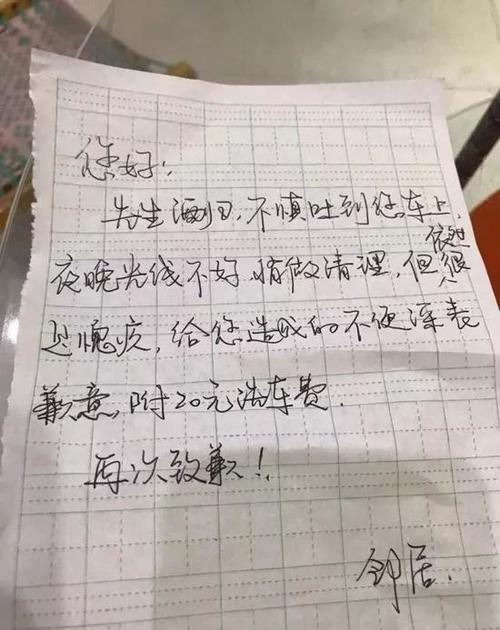 您好:
先生酒归,不慎吐到您车上,
夜晚光线不好,稍做清理,但依然很
过愧疚,给您造成的不便深表
歉意,附20元洗车费.
再次致歉!
邻居.